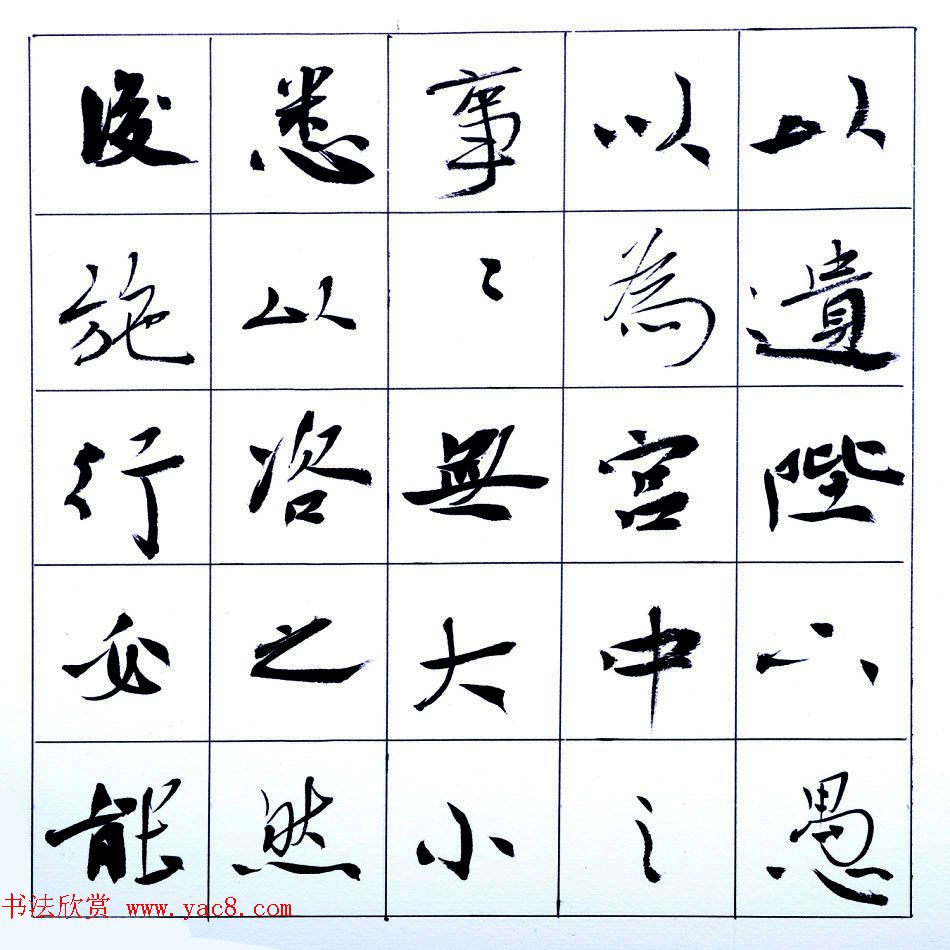 以遺陛下愚
以為宮中之
事〻無大小
悉以咨之然
後施行必能
书法欣赏 www.yac8.com